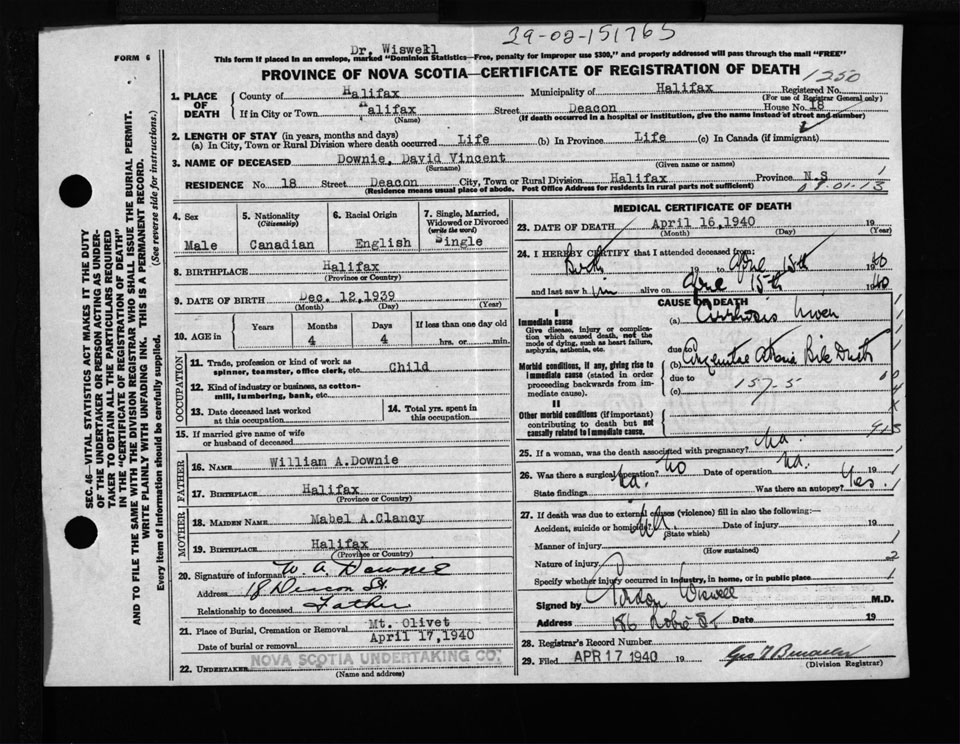 29-02-151765
Dr. Wiswell
FORM 6
This form if placed in an envelope, marked "Dominion Statistics—Free, penalty for improper use $300," and properly addressed will pass through the mail "FREE"
PROVINCE OF NOVA SCOTIA—CERTIFICATE OF REGISTRATION OF DEATH
1250
1. PLACE OF DEATH
County of Halifax Municipality of Halifax Registered No.
(For use of Registrar General only)
If in City or Town Halifax Street Deacon House No. 18
(Name) (If death occurred in a hospital or institution, give the name instead of street and number)
2. LENGTH OF STAY (in years, months and days)
(a) In City, Town or Rural Division where death occurred Life (b) In Province Life (c) In Canada (if immigrant)
3. NAME OF DECEASED Downie, David Vincent
(Surname) (Given name or names)
RESIDENCE No. 18 Street Deacon City, Town or Rural Division Halifax Province N.S
(Residence means usual place of abode. Post Office Address for residents in rural parts not sufficient)
SEC. 46—VITAL STATISTICS ACT MAKES IT THE DUTY
OF THE UNDERTAKER OR PERSON ACTING AS UNDER-
TAKER TO OBTAIN ALL THE PARTICULARS REQUIRED
IN THE "CERTIFICATE OF REGISTRATION OF DEATH"
AND TO FILE THE SAME WITH THE DIVISION REGISTRAR WHO SHALL ISSUE THE BURIAL PERMIT.
WRITE PLAINLY WITH UNFADING INK. THIS IS A PERMANENT RECORD.
Every item of information should be carefully supplied. (See reverse side for instructions.)
4. Sex Male
5. Nationality (Citizenship) Canadian
6. Racial Origin English
7. Single, Married, Widowed or Divorced (write the word) Single
8. BIRTHPLACE Halifax
(Province or Country)
9. DATE OF BIRTH Dec. 12, 1939
(Month) (Day) (Year)
10. AGE in Years Months 4 Days 4 If less than one day old hrs. or min.
OCCUPATION
11. Trade, profession or kind of work as spinner, teamster, office clerk, etc. Child
12. Kind of industry or business, as cotton-mill, lumbering, bank, etc.
13. Date deceased last worked at this occupation
14. Total yrs. spent in this occupation
15. If married give name of wife or husband of deceased
FATHER
16. NAME William A. Downie
17. BIRTHPLACE Halifax
(Province or Country)
MOTHER
18. MAIDEN NAME Mabel A. Clancy
19. BIRTHPLACE Halifax
(Province or Country)
20. Signature of informant W. A. Downie
Address 18 Deacon St.
Relationship to deceased Father
21. Place of Burial, Cremation or Removal Mt. Olivet
Date of burial or removal April 17, 1940
22. UNDERTAKER NOVA SCOTIA UNDERTAKING CO.
(Name and address)
MEDICAL CERTIFICATE OF DEATH
23. DATE OF DEATH April 16, 1940 19
(Month) (Day) (Year)
24. I HEREBY CERTIFY that I attended deceased from:
Birth 19 to April 15th 1940
and last saw him alive on April 15th 1940
CAUSE OF DEATH
I
Immediate cause
Give disease, injury or complication which caused death, not the mode of dying, such as heart failure, asphyxia, asthenia, etc.
(a) Cirrhosis Liver
due to
Morbid conditions, if any, giving rise to immediate cause (stated in order proceeding backwards from immediate cause).
(b) Bile Ducts
due to 157-5
(c)
II
Other morbid conditions (if important) contributing to death but not causally related to immediate cause.
25. If a woman, was the death associated with pregnancy? Na.
26. Was there a surgical operation? No Date of operation Na. 19
State findings Na. Was there an autopsy? Yes.
27. If death was due to external causes (violence) fill in also the following:—
Accident, suicide or homicide? Date of injury 19
(State which)
Manner of injury
(How sustained)
Nature of injury
Specify whether injury occurred in industry, in home, or in public place
Signed by Gordon Wiswell M.D.
Address 186 Robie St Date 19
28. Registrar's Record Number
29. Filed APR 17 1940 19
(Division Registrar)